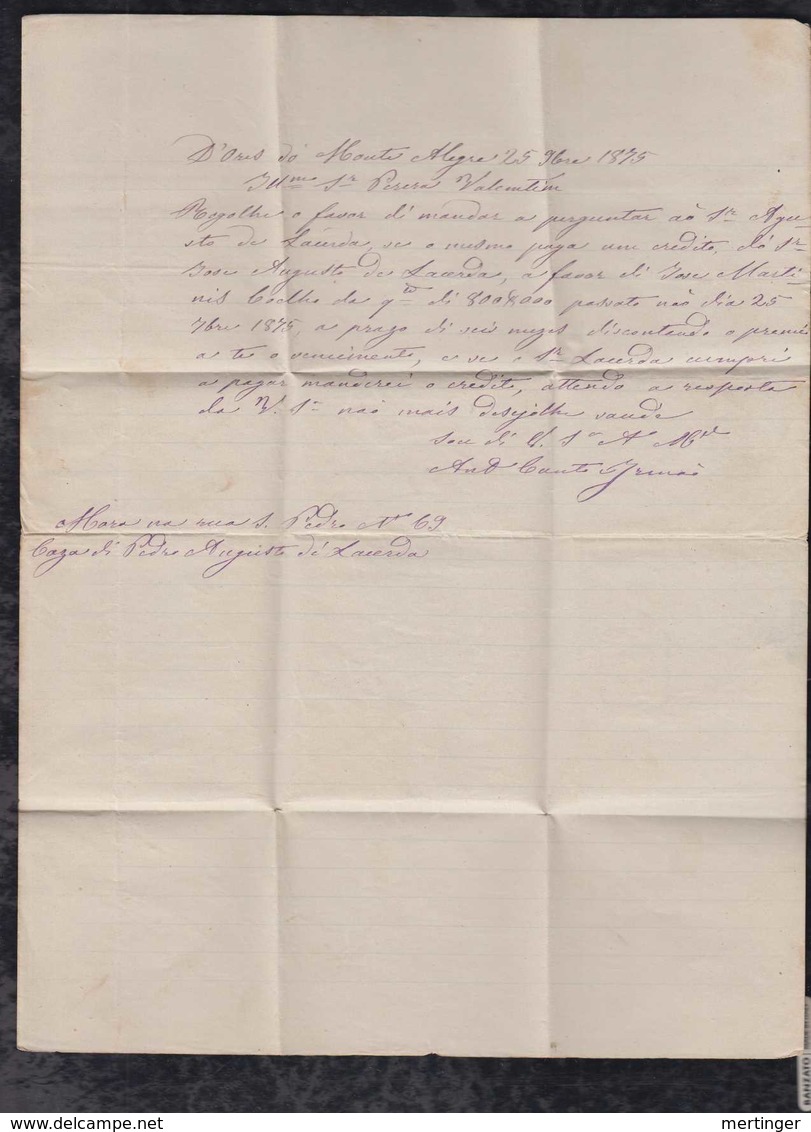 D'Ores do Monte Alegre 25 9bre 1875
Illmo Sr Perera Valentim
Rogolhe o favor di mandar a perguntar aò Sr Agu-
sto de Lacerda, se o mesmo paga um credito, dò Sr
Jose Augusto de Lacerda, a favor di Jose Marti-
nis Coelho da qta di 800$000 passato nò dia 25
7bre 1875, a prazo di seis mezes discontando o premi
a te o vencimento, e se o Sr Lacerda cumpri
a pagar manderei o credito, attendo a resposta
da V. Sa não mais desejolhe saude
sou di V. Sa
Canto Irmaõ
Mora na rua S. Pedro No 69
Caza di Pedro Augusto di Lacerda
RANZATO
mertinger